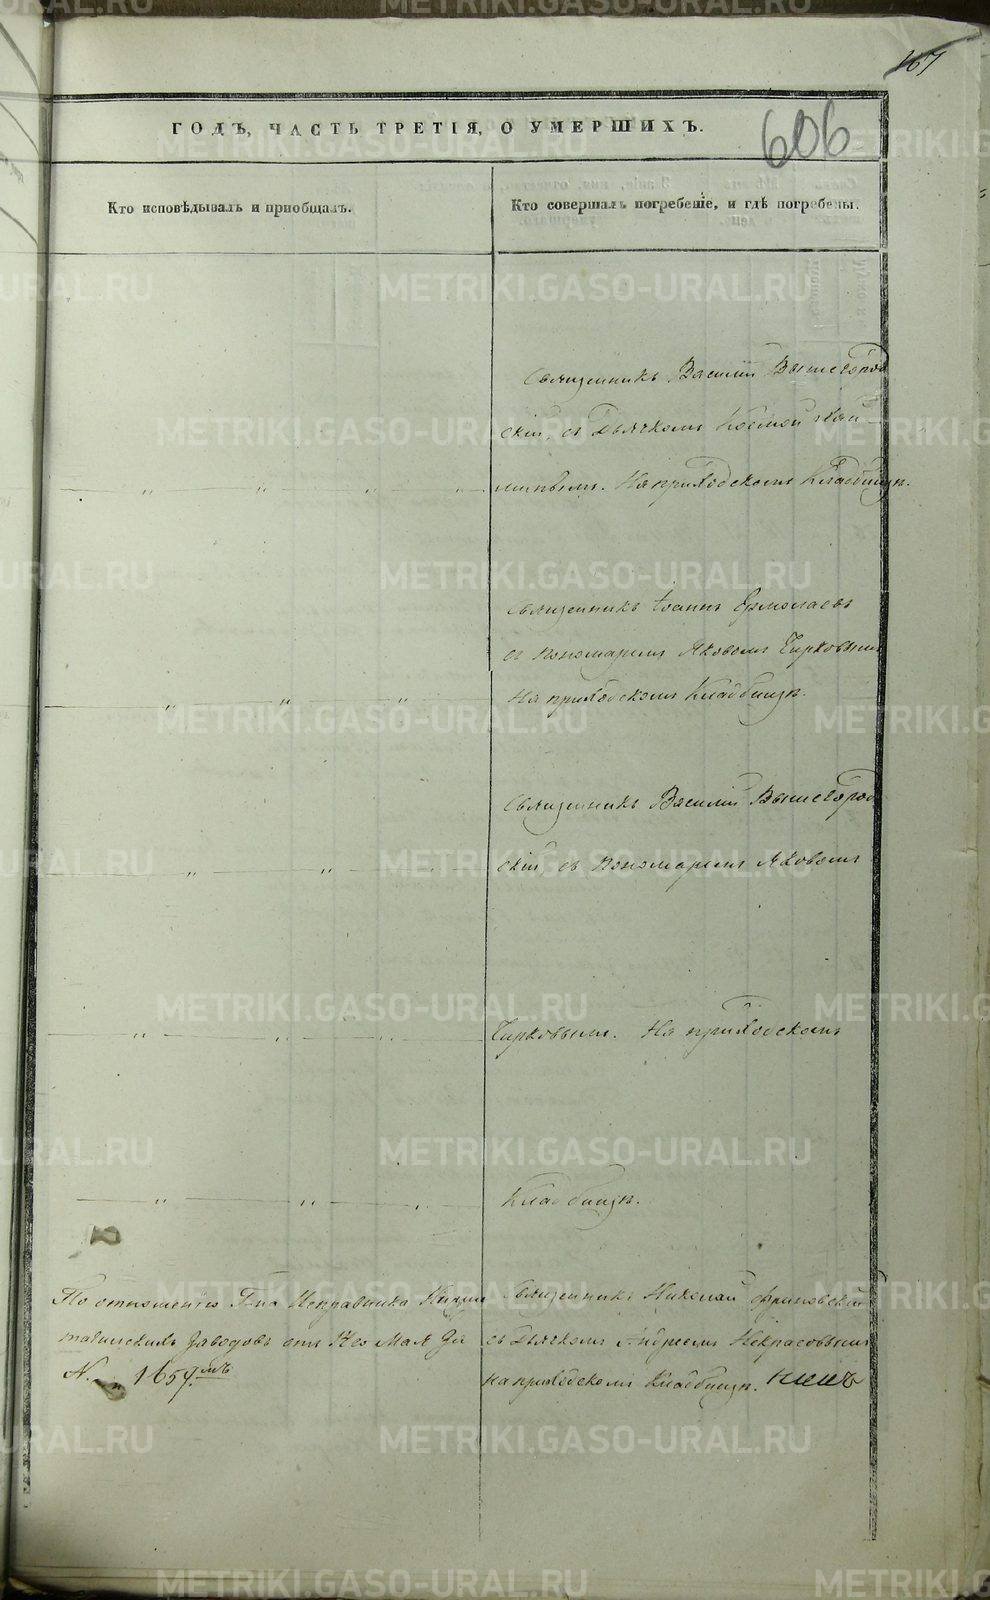 167
606
ГОДЪ, ЧАСТЬ ТРЕТІЯ, О УМЕРШИХЪ.
Кто исповѣдывалъ и приобщалъ.
Кто совершалъ погребеніе, и гдѣ погребены.
Священникъ Василій Вышегород
скій, съ Дьячкомъ Космой
На приходскомъ Кладбищѣ.
Священникъ Іоаннъ Ермолаевъ
съ пономаремъ Яковомъ Чирковымъ
На приходскомъ Кладбищѣ.
Священникъ Василій Вышегород
скій, съ Пономаремъ Яковомъ
Чирковымъ. На приходскомъ
Кладбищѣ.
По отношенію Г-на Исправника
Заводовъ отъ
N. 1657.мъ
Священникъ Николай
съ Дьячкомъ Андреемъ Некрасовымъ
на приходскомъ Кладбищѣ.
METRIKI.GASO-URAL.RU